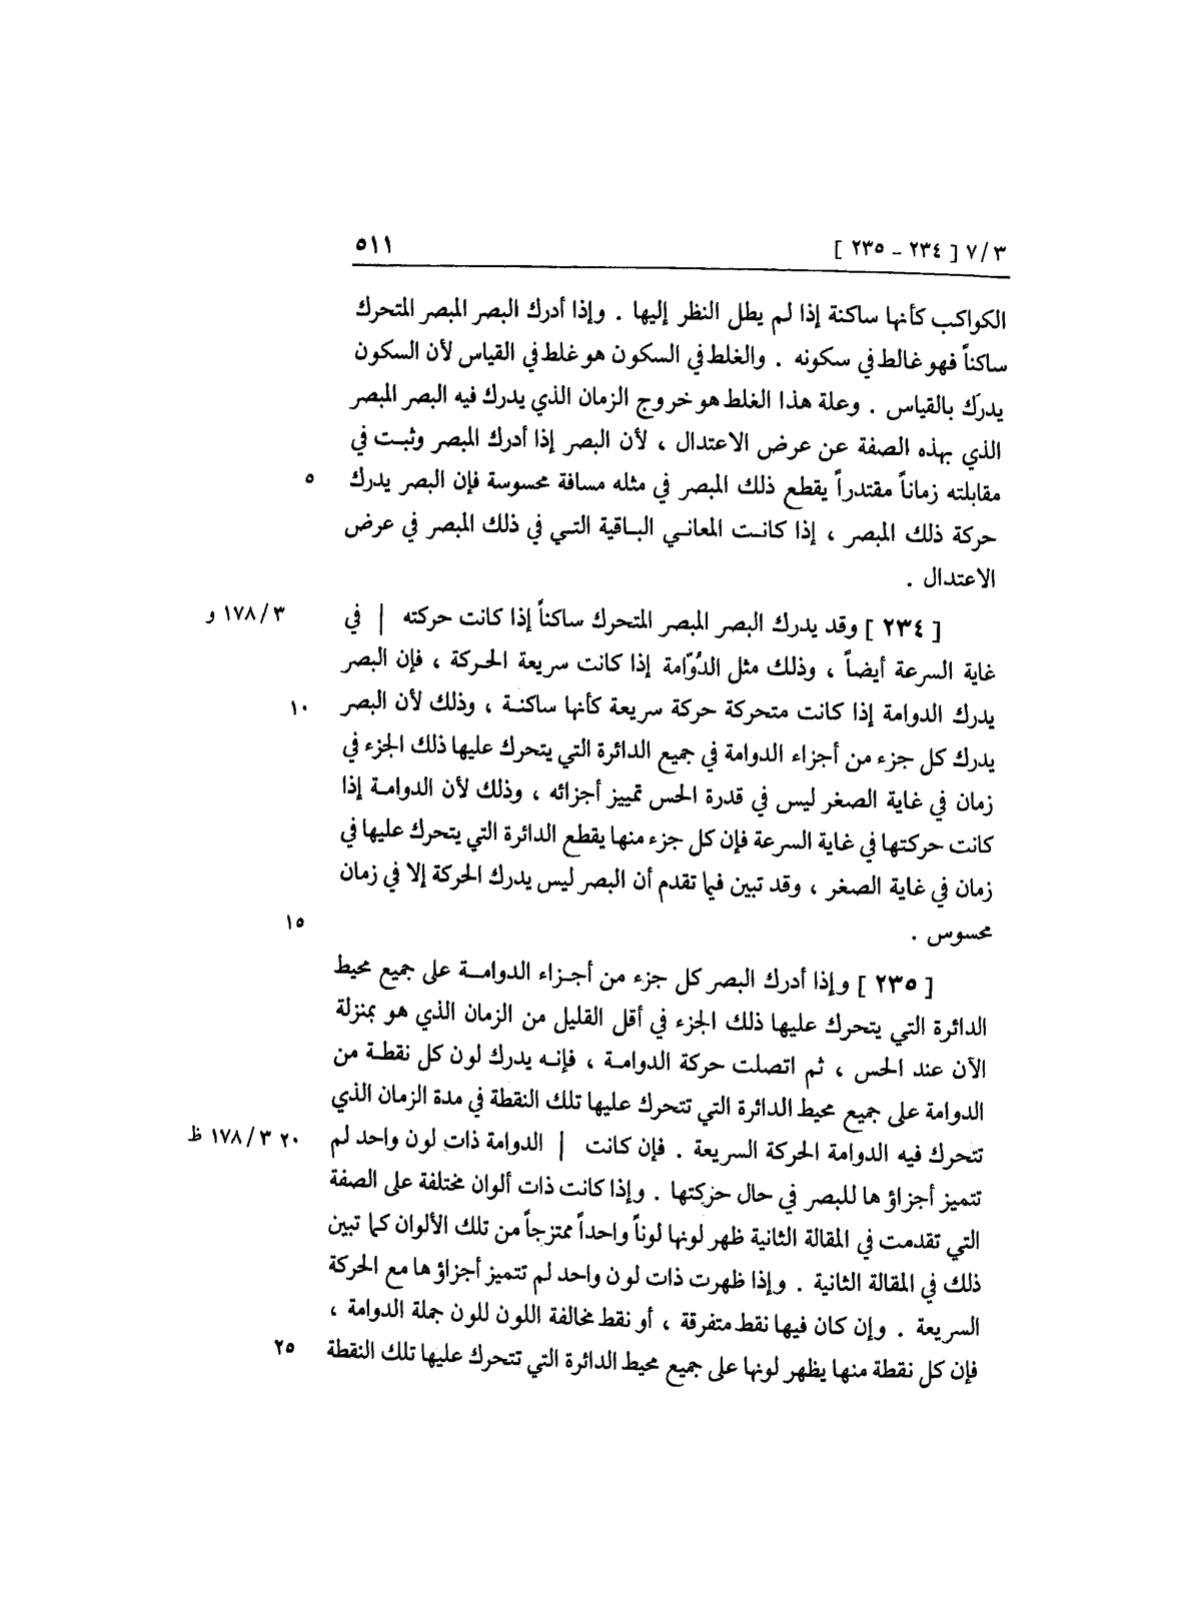 ٣/٧ [ ٢٣٤ - ٢٣٥ ] ٥١١
الكواكب كأنها ساكنة إذا لم يطل النظر إليها . وإذا أدرك البصر المبصر المتحرك
ساكناً فهو غالط في سكونه . والغلط في السكون هو غلط في القياس لأن السكون
يدرك بالقياس . وعلة هذا الغلط هو خروج الزمان الذي يدرك فيه البصر المبصر
الذي بهذه الصفة عن عرض الاعتدال ، لأن البصر إذا أدرك المبصر وثبت في
مقابلته زماناً مقتدراً يقطع ذلك المبصر في مثله مسافة محسوسة فإن البصر يدرك ٥
حركة ذلك المبصر ، إذا كانت المعاني الباقية التي في ذلك المبصر في عرض
الاعتدال .
[ ٢٣٤ ] وقد يدرك البصر المبصر المتحرك ساكناً إذا كانت حركته | في ٣/١٧٨ و
غاية السرعة أيضاً ، وذلك مثل الدُوّامة إذا كانت سريعة الحركة ، فإن البصر
يدرك الدوامة إذا كانت متحركة حركة سريعة كأنها ساكنة ، وذلك لأن البصر ١٠
يدرك كل جزء من أجزاء الدوامة في جميع الدائرة التي يتحرك عليها ذلك الجزء في
زمان في غاية الصغر ليس في قدرة الحس تمييز أجزائه ، وذلك لأن الدوامة إذا
كانت حركتها في غاية السرعة فإن كل جزء منها يقطع الدائرة التي يتحرك عليها في
زمان في غاية الصغر ، وقد تبين فيما تقدم أن البصر ليس يدرك الحركة إلا في زمان
محسوس . ١٥
[ ٢٣٥ ] وإذا أدرك البصر كل جزء من أجزاء الدوامة على جميع محيط
الدائرة التي يتحرك عليها ذلك الجزء في أقل القليل من الزمان الذي هو بمنزلة
الآن عند الحس ، ثم اتصلت حركة الدوامة ، فإنه يدرك لون كل نقطة من
الدوامة على جميع محيط الدائرة التي تتحرك عليها تلك النقطة في مدة الزمان الذي
تتحرك فيه الدوامة الحركة السريعة . فإن كانت | الدوامة ذات لون واحد لم ٢٠ ٣/١٧٨ ظ
تتميز أجزاؤها للبصر في حال حركتها . وإذا كانت ذات ألوان مختلفة على الصفة
التي تقدمت في المقالة الثانية ظهر لونها لوناً واحداً ممتزجاً من تلك الألوان كما تبين
ذلك في المقالة الثانية . وإذا ظهرت ذات لون واحد لم تتميز أجزاؤها مع الحركة
السريعة . وإن كان فيها نقط متفرقة ، أو نقط مخالفة اللون للون جملة الدوامة ،
فإن كل نقطة منها يظهر لونها على جميع محيط الدائرة التي تتحرك عليها تلك النقطة ٢٥